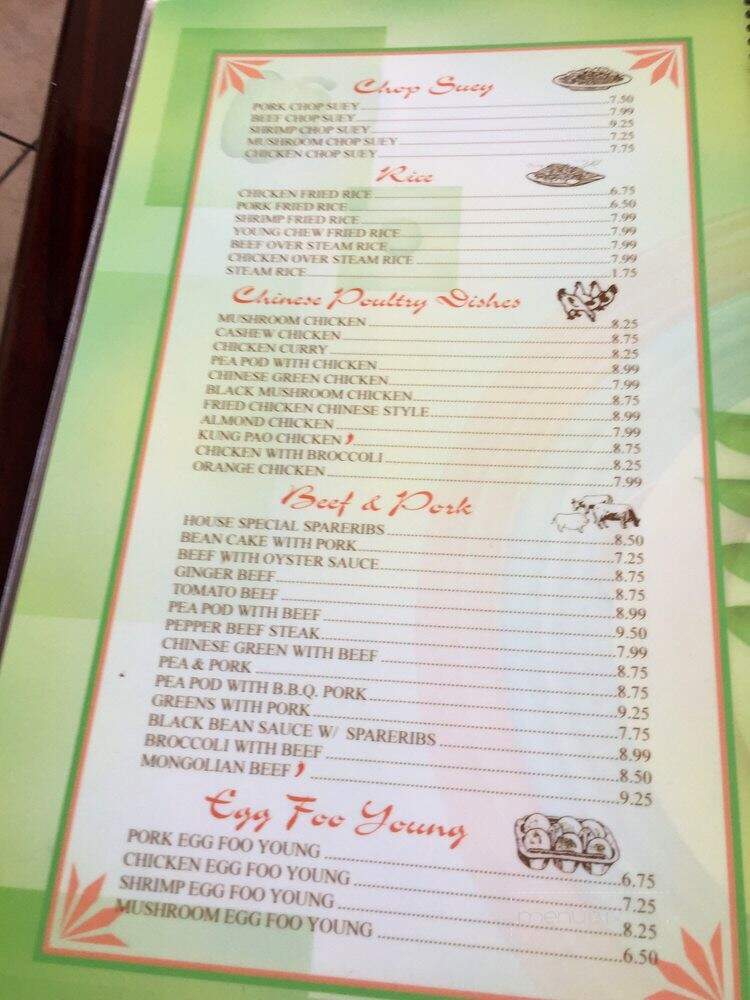 Chop Suey
PORK CHOP SUEY 7.50
BEEF CHOP SUEY 7.99
SHRIMP CHOP SUEY 9.25
MUSHROOM CHOP SUEY 7.25
CHICKEN CHOP SUEY 7.75
Rice
CHICKEN FRIED RICE 6.75
PORK FRIED RICE 6.50
SHRIMP FRIED RICE 7.99
YOUNG CHEW FRIED RICE 7.99
BEEF OVER STEAM RICE 7.99
CHICKEN OVER STEAM RICE 7.99
STEAM RICE 1.75
Chinese Poultry Dishes
MUSHROOM CHICKEN 8.25
CASHEW CHICKEN 8.75
CHICKEN CURRY 8.25
PEA POD WITH CHICKEN 8.99
CHINESE GREEN CHICKEN 7.99
BLACK MUSHROOM CHICKEN 8.75
FRIED CHICKEN CHINESE STYLE 8.99
ALMOND CHICKEN 7.99
KUNG PAO CHICKEN 8.75
CHICKEN WITH BROCCOLI 8.25
ORANGE CHICKEN 7.99
Beef & Pork
HOUSE SPECIAL SPARERIBS 8.50
BEAN CAKE WITH PORK 7.25
BEEF WITH OYSTER SAUCE 8.75
GINGER BEEF 8.75
TOMATO BEEF 8.99
PEA POD WITH BEEF 9.50
PEPPER BEEF STEAK 7.99
CHINESE GREEN WITH BEEF 8.75
PEA & PORK 8.75
PEA POD WITH B.B.Q. PORK 9.25
GREENS WITH PORK 7.75
BLACK BEAN SAUCE W/ SPARERIBS 8.99
BROCCOLI WITH BEEF 8.50
MONGOLIAN BEEF 9.25
Egg Foo Young
PORK EGG FOO YOUNG 6.75
CHICKEN EGG FOO YOUNG 7.25
SHRIMP EGG FOO YOUNG 8.25
MUSHROOM EGG FOO YOUNG 6.50